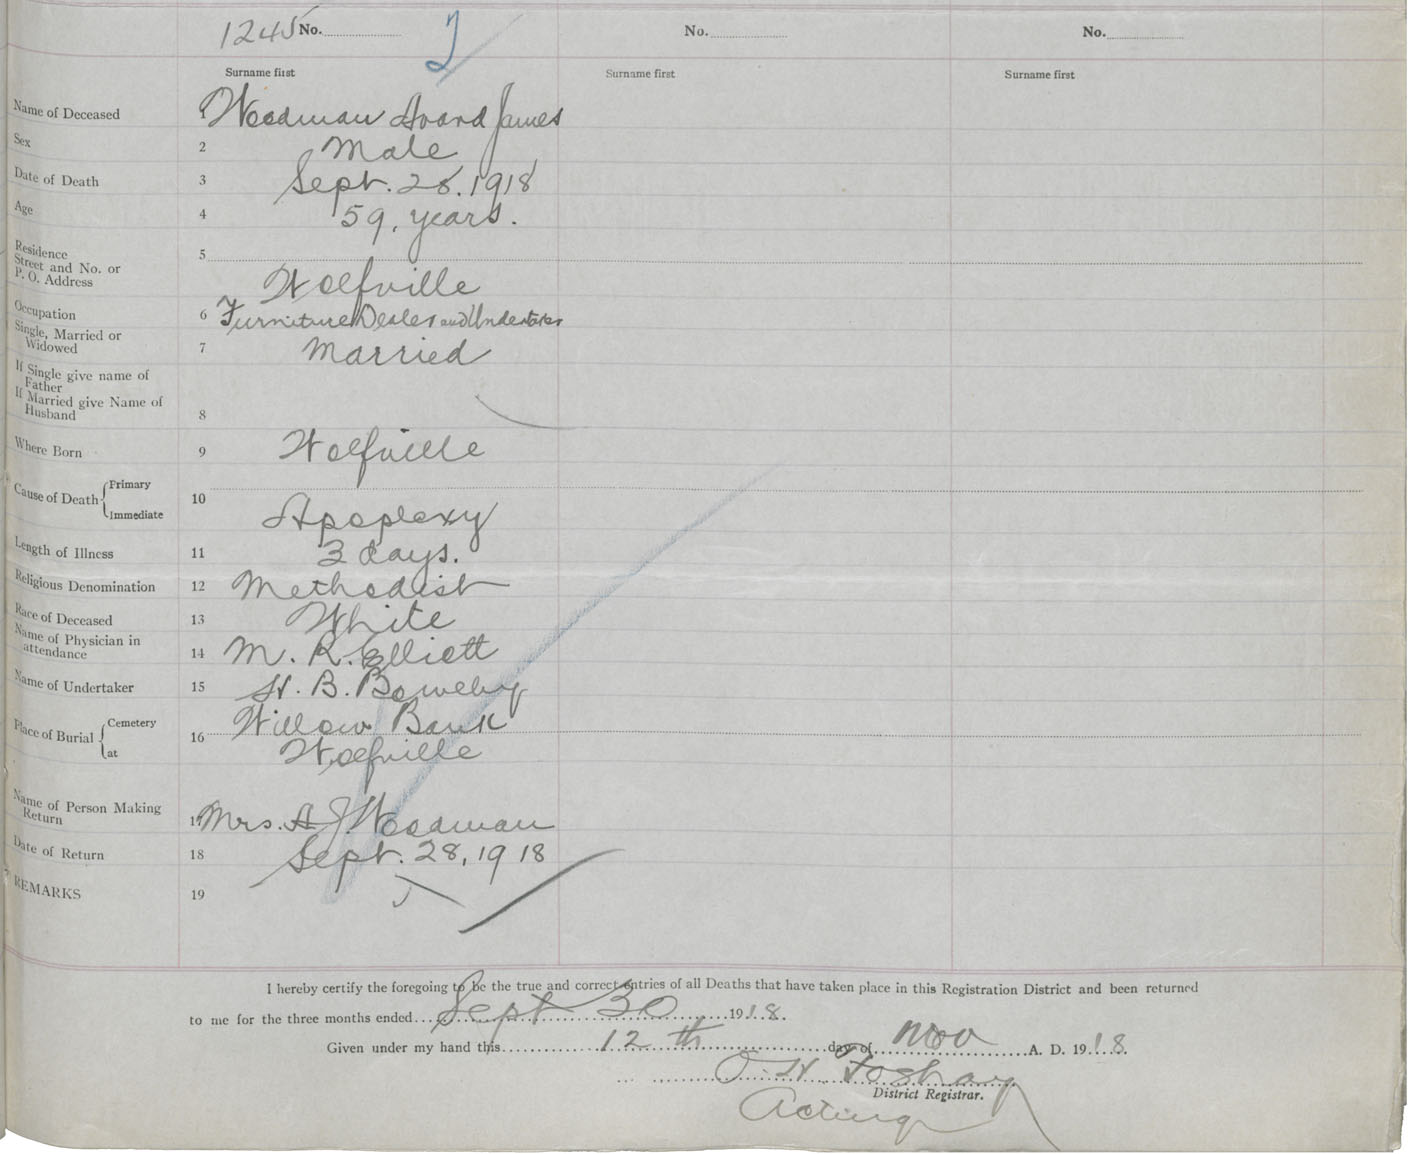 1245 No. No. No.
Surname first Surname first Surname first
Name of Deceased 1 Woodman Avard James
Sex 2 Male
Date of Death 3 Sept. 28. 1918
Age 4 59, years.
Residence
Street and No. or 5
P. O. Address Wolfville
Occupation 6 Furniture Dealer and Undertaker
Single, Married or
Widowed 7 Married
If Single give name of
Father
If Married give Name of
Husband 8
Where Born 9 Wolfville
Cause of Death { Primary 10
Immediate Apoplexy
Length of Illness 11 3 days.
Religious Denomination 12 Methodist
Race of Deceased 13 White
Name of Physician in
attendance 14 M. R. Elliott
Name of Undertaker 15 W. B. Bowlby
Place of Burial { Cemetery 16 Willow Bank
at Wolfville
Name of Person Making
Return 17 Mrs. A J. Woodman
Date of Return 18 Sept. 28, 1918
REMARKS 19
I hereby certify the foregoing to be the true and correct entries of all Deaths that have taken place in this Registration District and been returned
to me for the three months ended Sept 30 1918.
Given under my hand this 12 th day of Nov A. D. 1918.
Foshay
District Registrar.
Acting